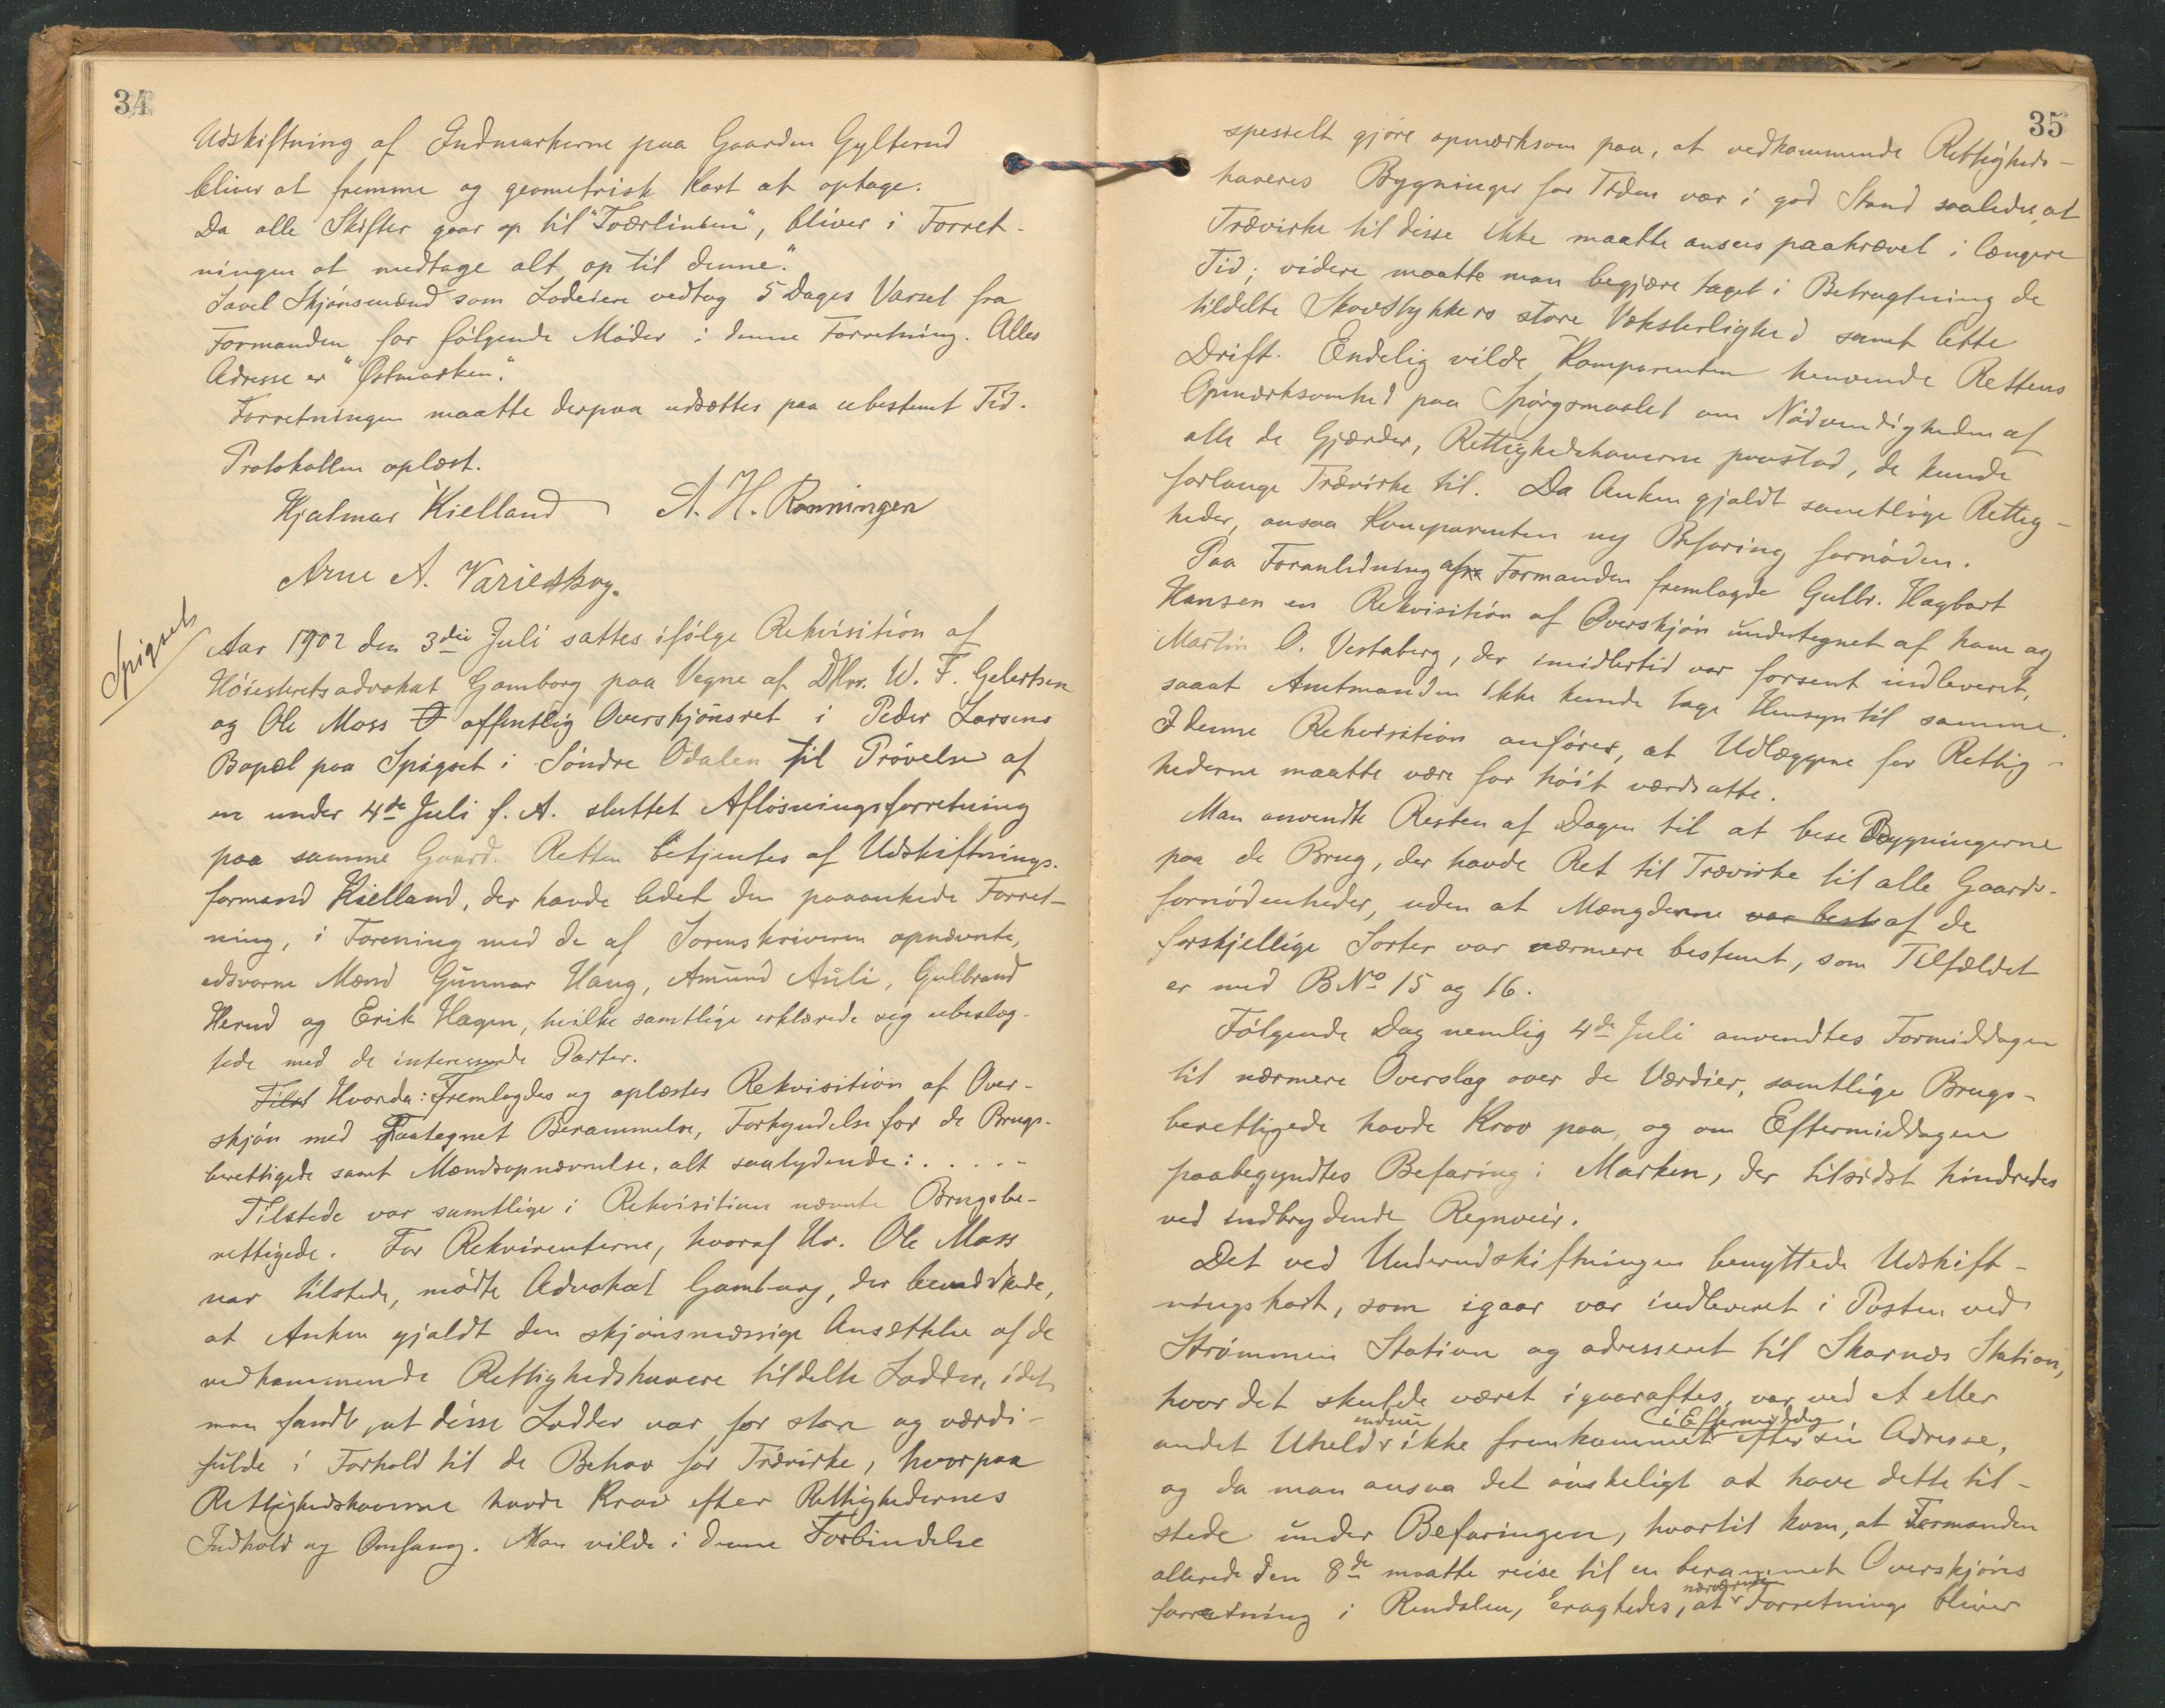 34
Udskiftning af Indmarkerne paa Gaarden Gylterud
bliver at fremme og geometrisk Kart at optage.
Da alle Skifter gaar op til "Tværlinien", bliver i Forret-
ningen at medtage alt op til denne".
Savel Skjønsmænd som Lodeiere vedtog 5 Dages Varsel fra
Formanden for følgende Møder i denne Forretning. Alles
Adresse er "Østmarken".
Forretningen maatte derpaa udsættes paa ubestemt Tid.
Protokollen oplæst.
Hjalmar Kielland A. H. Rønningen
Arne A. Varildskog.
Spigset
Aar 1902 den 3die Juli sattes ifølge Rekvisition af
Høiesteretsadvokat Gamborg paa Vegne af DHrr. W. F. Gelertsen
og Ole Moss O offentlig Overskjønsret i Peder Larsens
Bopæl paa Spigset i Søndre Odalen til Prøvelse af
en under 4de Juli f. A. sluttet Afløsningsforretning
paa samme Gaard. Retten betjentes af Udskiftnings-
formand Kielland, der havde ledet den paaankede Forret-
ning, i Forening med de af Sorenskriveren opnævnte,
edsvorne Mænd Gunnar Haug, Amund Auli, Gulbrand
Herud og Erik Hagen, hvilke samtlige erklærede sig ubeslæg-
tede med de interesserede Parter.
Tilst Hvorda: Fremlagdes og oplæstes Rekvisition af Over-
skjøn med Paategnet Berammelse, Forkyndelse for de Brugs-
berettigede samt Mændsopnævnelse, alt saalydende: . . . . .
Tilstede var samtlige i Rekvisitionen nævnte Brugsbe-
rettigede. For Rekvirenterne, hvoraf Hr. Ole Moss
var tilstede, mødte Advokat Gamborg, der bemærkede,
at Anken gjaldt den skjønsmæssige Ansættelse af de
vedkommende Rettighedshavere tildelte Lodder, idet
man fandt, at disse Lodder var for store og værdi-
fulde i Forhold til de Behov for Trævirke, hvorpaa
Rettighedshaverne havde Krav efter Rettighedernes
Indhold og Omfang. Man vilde i denne Forbindelse
35
spesielt gjøre opmærksom paa, at vedkommende Rettigheds-
haveres Bygninger for Tiden var i god Stand saaledes, at
Trævirke til disse ikke maatte ansees paakrævet i længere
Tid; videre maatte man begjære taget i Betragtning de
tildelte Skovstykkers store Vækstelighed samt lette
Drift. Endelig vilde Komparenten henvende Rettens
Opmærksomhed paa Spørgsmaalet om Nødvendigheden af
alle de Gjærder, Rettighedshaverne paastod, de kunde
forlange Trævirke til. Da Anken gjaldt samtlige Rettig-
heder, ansaa Komparenten ny Befaring fornøden.
Paa Foranledning af Formanden fremlagde Gulbr. Hagbart
Hansen en Rekvisition af Overskjøn undertegnet af ham og
Martin O. Vestaberg, der imidlertid var forsent indleveret,
saaat Amtmanden ikke kunde tage Hensyn til samme.
I denne Rekvisition anføres, at Udlæggene for Rettig-
hederne maatte være for høit værdsatte.
Man anvendte Resten af Dagen til at bese Bygningerne
paa de Brug, der havde Ret til Trævirke til alle Gaards-
fornødenheder, uden at Mængderne var best af de
forskjellige Sorter var nærmere bestemt, som Tilfældet
er med BNo 15 og 16.
Følgende Dag nemlig 4de Juli anvendtes Formiddagen
til nærmere Overslag over de Værdier, samtlige Brugs-
berettigede havde Krav paa, og om Eftermiddagen
paabegyndtes Befaring i Marken, der tilsidst hindredes
ved indbrydende Regnveir.
Det ved Underudskiftningen benyttede Udskift-
ningskart, som igaar var indleveret i Posten ved
Strømmen Station og adresseret til Skarnæs Station,
hvor det skulde været igaaraftes, var ved et eller
endnu i Eftermiddag
andet Uheld ikke fremkommet efter sin Adresse,
og da man ansaa det ønskeligt at have dette til-
stede under Befaringen, hvortil kom, at Formanden
allerede den 8de maatte reise til en berammet Overskjøns
nærværende
forretning i Rendalen, eragtedes, at Forretninge bliver